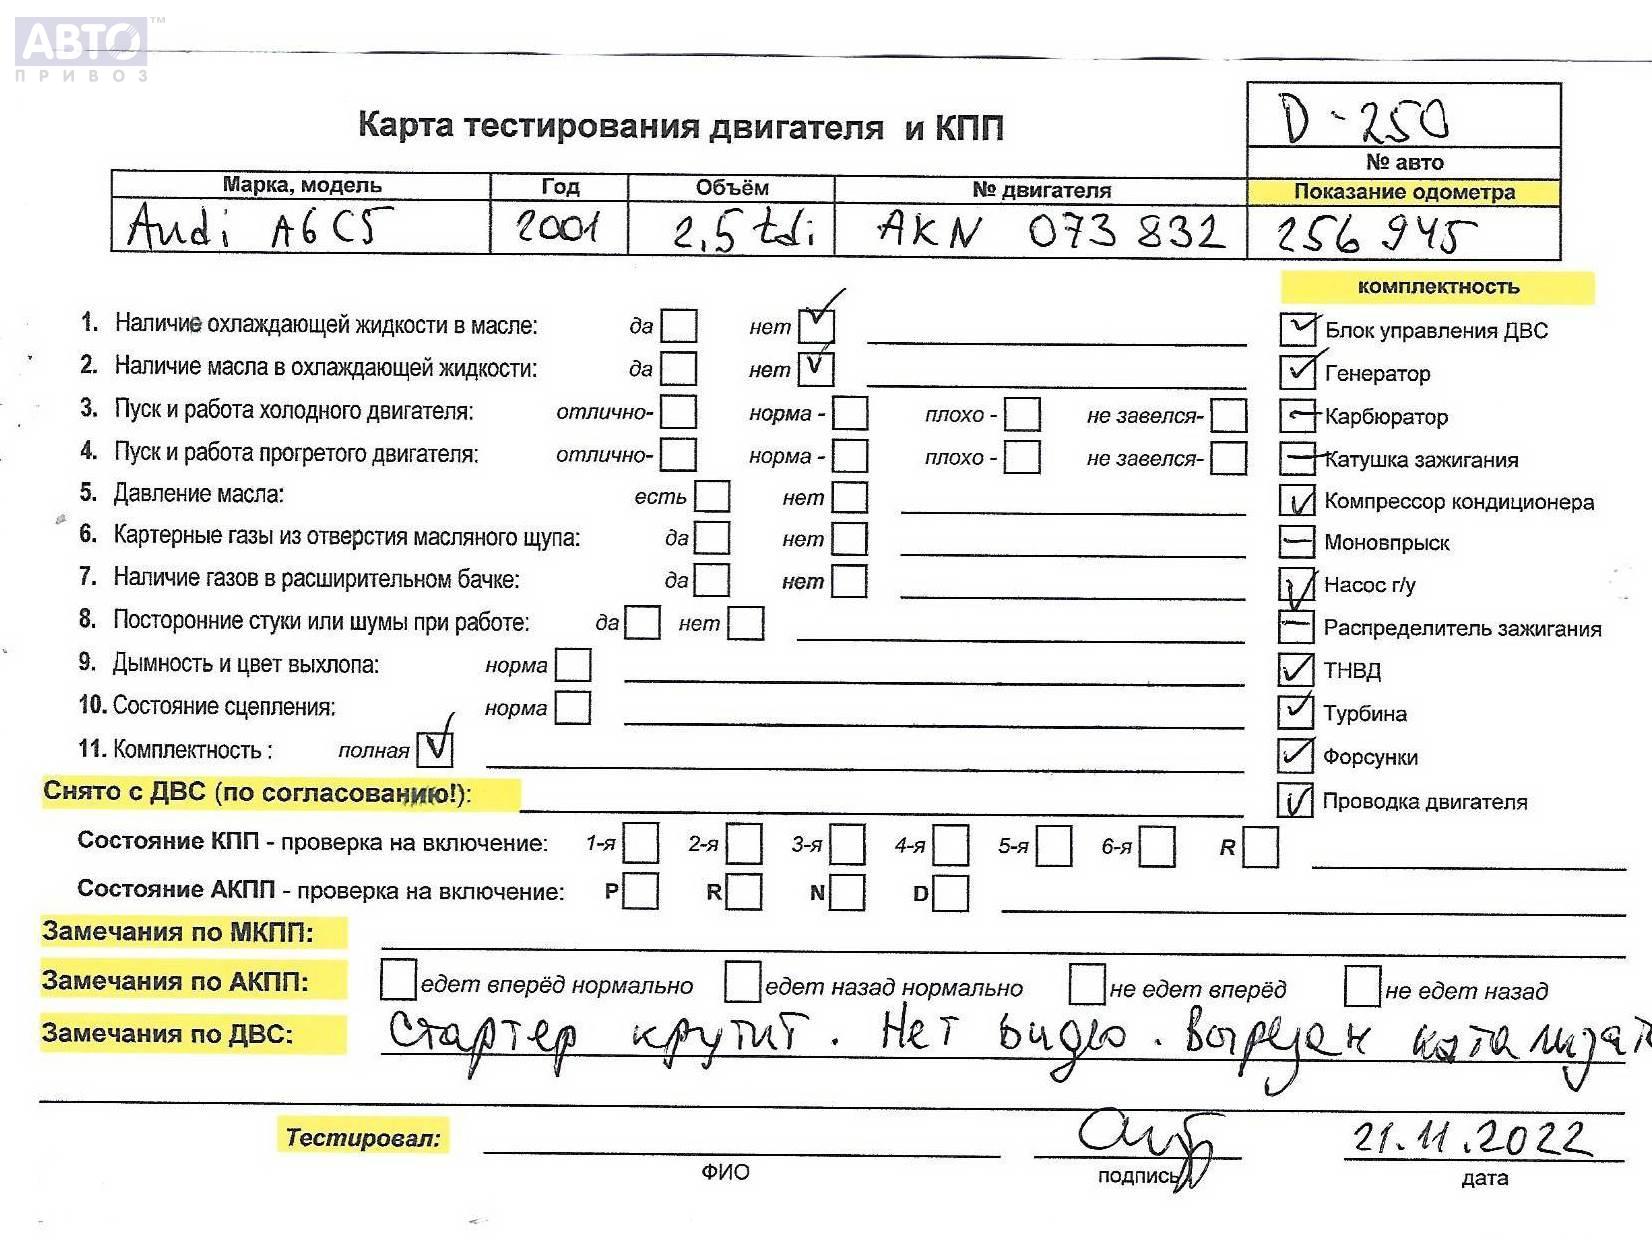 АВТО™
ПРИВОЗ
D-250
Карта тестирования двигателя и КПП
№ авто
Марка, модель Год Объём № двигателя Показание одометра
Audi A6C5 2001 2,5 tdi AKN 073 832 256 945
комплектность
1. Наличие охлаждающей жидкости в масле: да нет Блок управления ДВС
2. Наличие масла в охлаждающей жидкости: да нет Генератор
3. Пуск и работа холодного двигателя: отлично- норма - плохо - не завелся- Карбюратор
4. Пуск и работа прогретого двигателя: отлично- норма - плохо - не завелся- Катушка зажигания
5. Давление масла: есть нет Компрессор кондиционера
6. Картерные газы из отверстия масляного щупа: да нет Моновпрыск
7. Наличие газов в расширительном бачке: да нет Насос г/у
8. Посторонние стуки или шумы при работе: да нет Распределитель зажигания
9. Дымность и цвет выхлопа: норма ТНВД
10. Состояние сцепления: норма Турбина
11. Комплектность : полная Форсунки
Снято с ДВС (по согласованию!): Проводка двигателя
Состояние КПП - проверка на включение: 1-я 2-я 3-я 4-я 5-я 6-я R
Состояние АКПП - проверка на включение: P R N D
Замечания по МКПП:
Замечания по АКПП: едет вперёд нормально едет назад нормально не едет вперёд не едет назад
Замечания по ДВС: Стартер крутит. Нет видео. Вырезан катализат
Тестировал: 21.11.2022
ФИО подпись дата